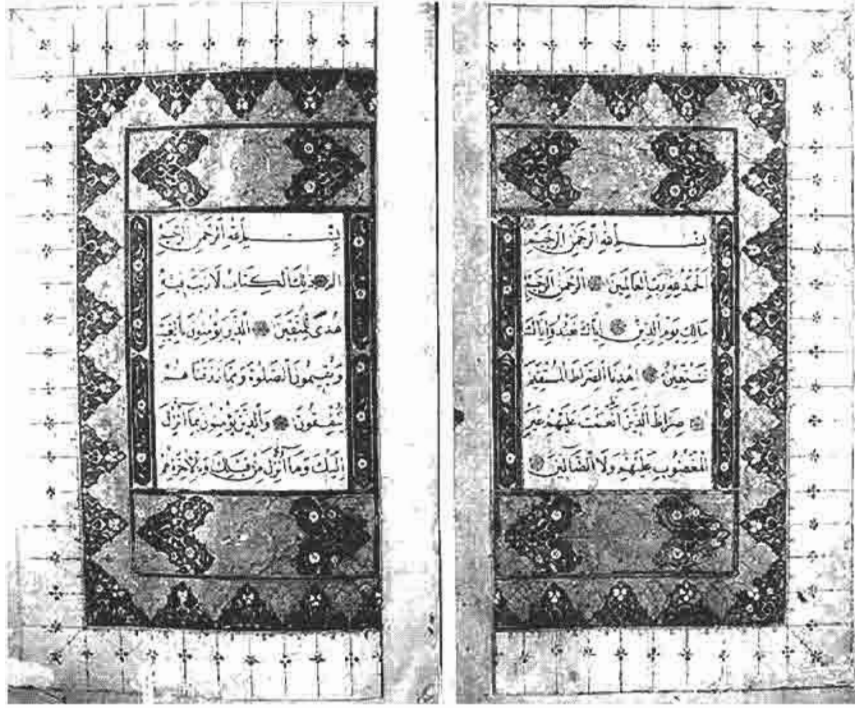 بِسْمِ اللهِ الرَّحْمٰنِ الرَّحِيمِ
اَلْحَمْدُ لِلّٰهِ رَبِّ الْعَالَمِينَ الرَّحْمٰنِ الرَّحِيمِ
مَالِكِ يَوْمِ الدِّينِ اِيَّاكَ نَعْبُدُ وَاِيَّاكَ
نَسْتَعِينُ اِهْدِنَا الصِّرَاطَ الْمُسْتَقِيمَ
صِرَاطَ الَّذِينَ اَنْعَمْتَ عَلَيْهِمْ غَيْرِ
الْمَغْضُوبِ عَلَيْهِمْ وَلَا الضَّالِّينَ
بِسْمِ اللهِ الرَّحْمٰنِ الرَّحِيمِ
الم ذٰلِكَ الْكِتَابُ لَا رَيْبَ فِيهِ
هُدًى لِلْمُتَّقِينَ اَلَّذِينَ يُؤْمِنُونَ بِالْغَيْبِ
وَيُقِيمُونَ الصَّلٰوةَ وَمِمَّا رَزَقْنَاهُمْ
يُنْفِقُونَ وَالَّذِينَ يُؤْمِنُونَ بِمَا اُنْزِلَ
اِلَيْكَ وَمَا اُنْزِلَ مِنْ قَبْلِكَ وَبِالْاٰخِرَةِ هُمْ